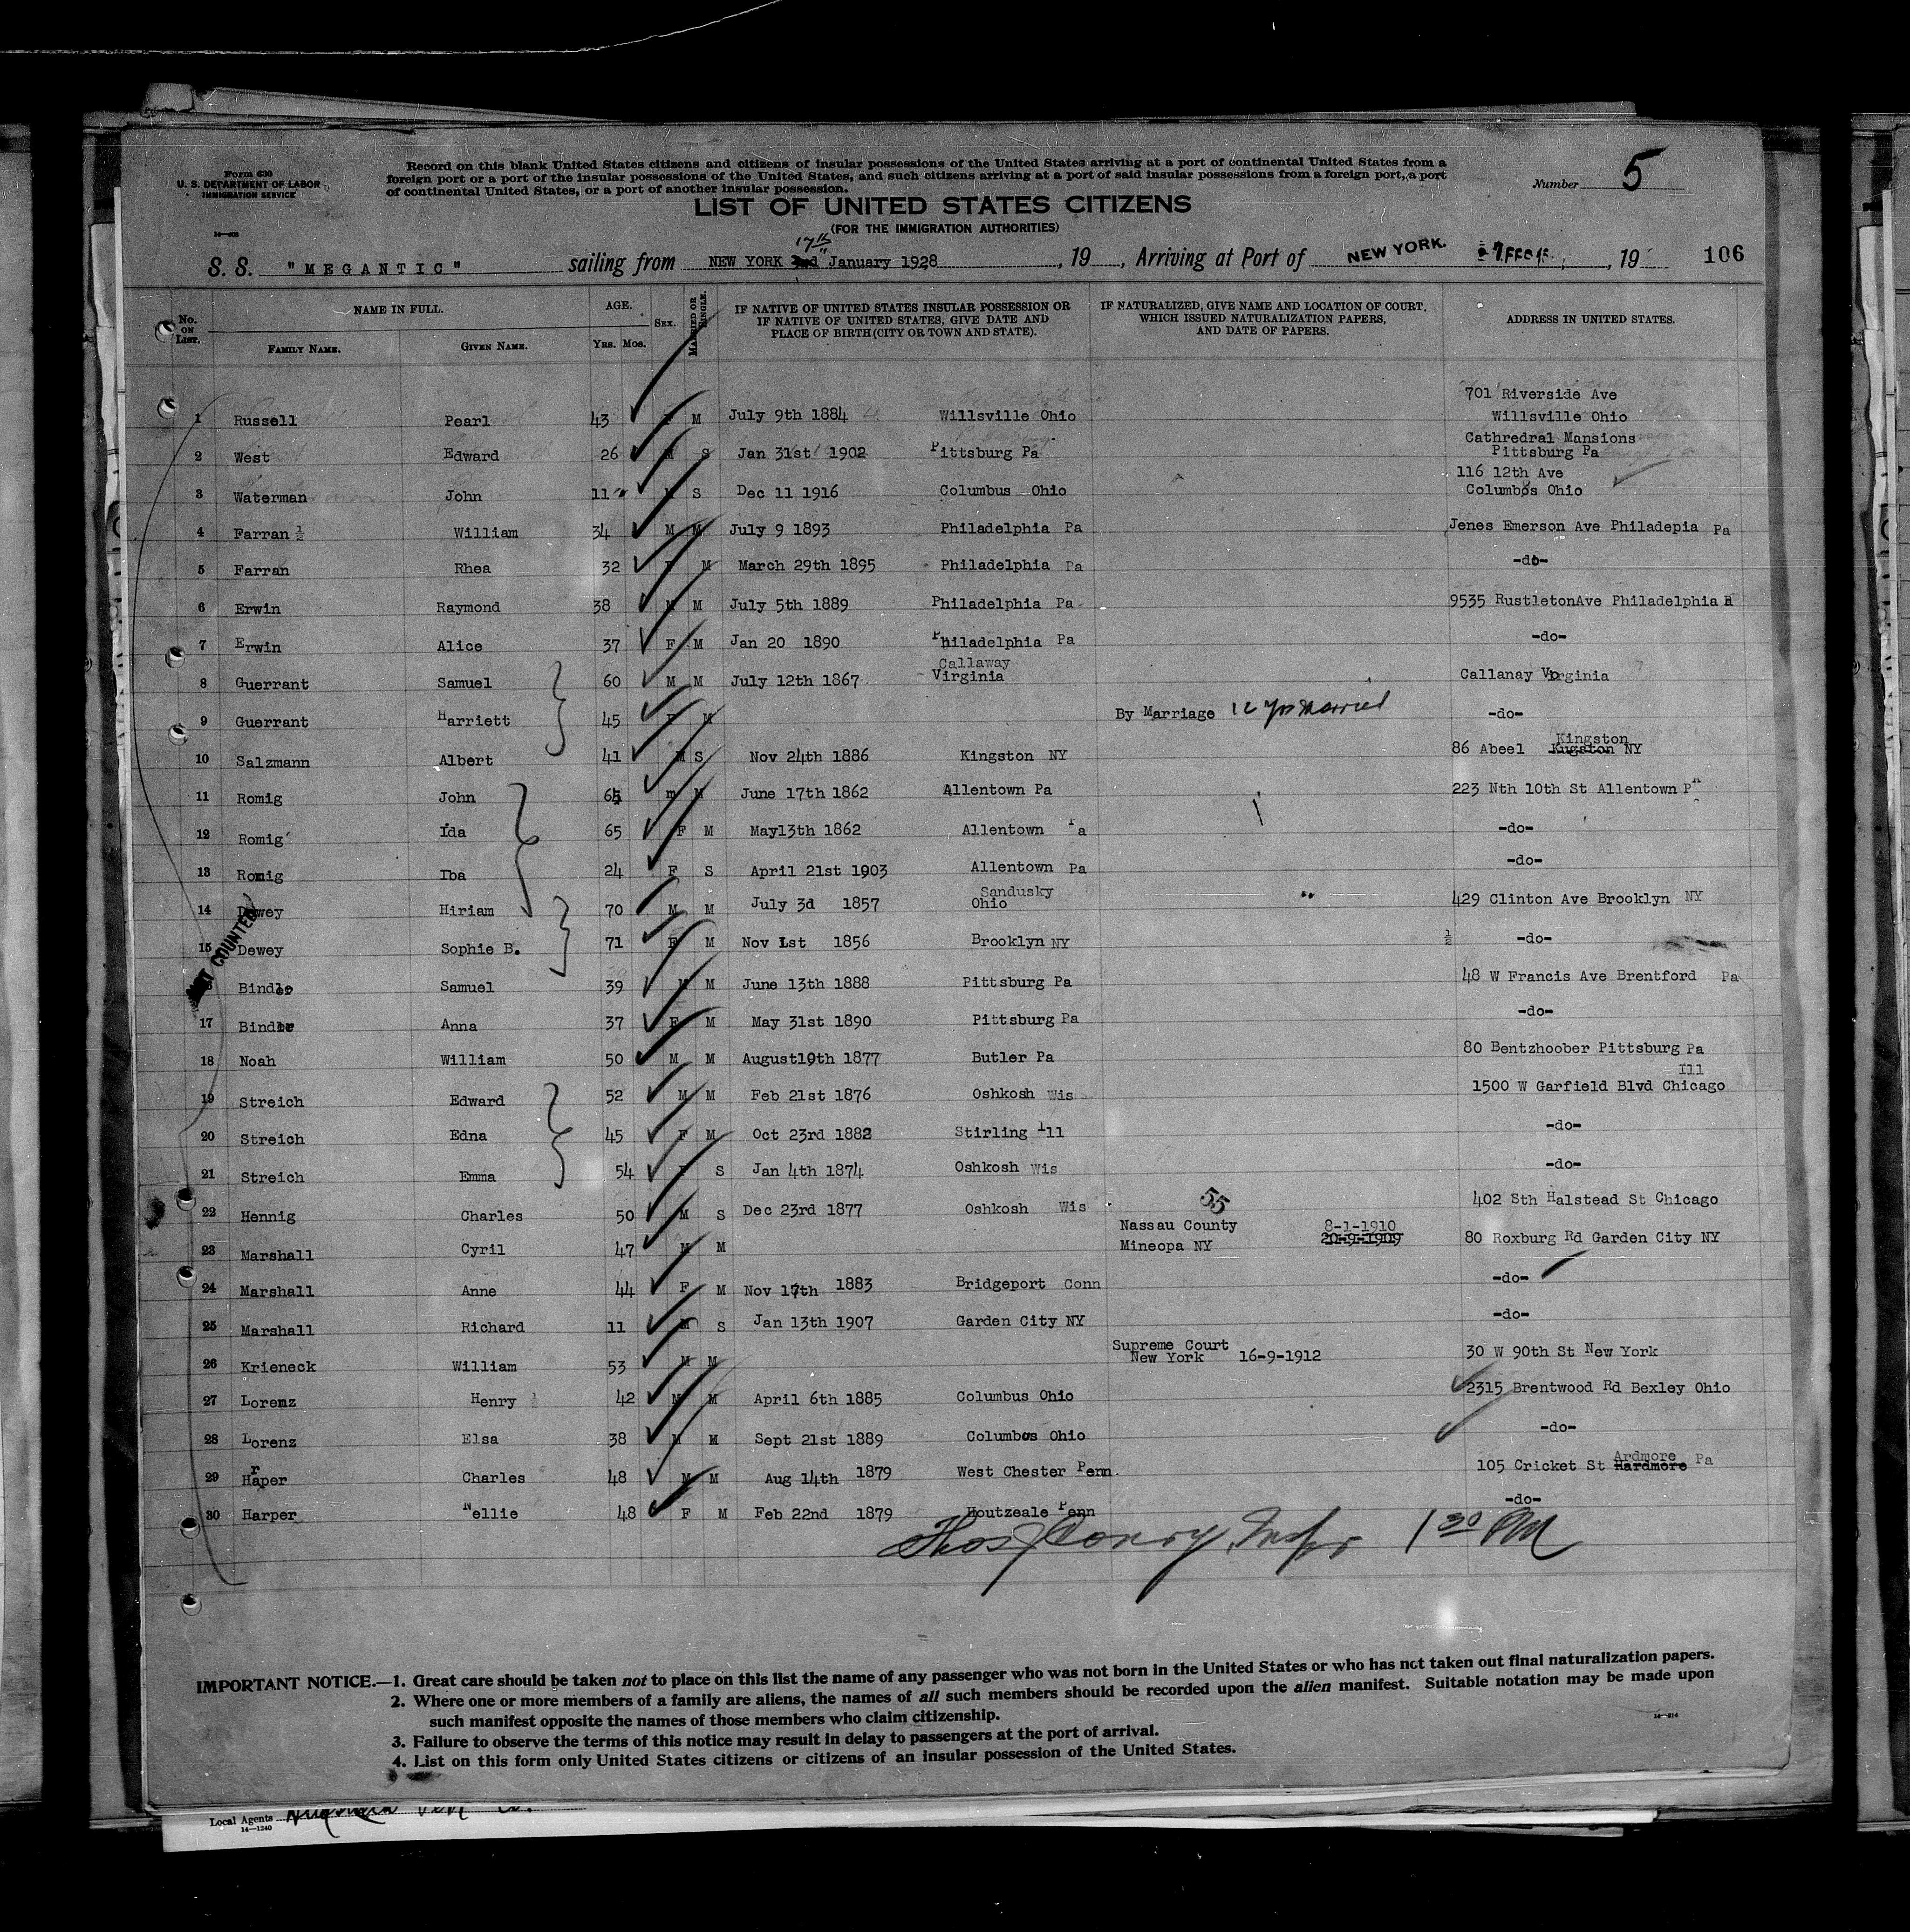 Form 630
U. S. DEPARTMENT OF LABOR
IMMIGRATION SERVICE
Record on this blank United States citizens and citizens of insular possessions of the United States arriving at a port of continental United States from a
foreign port or a port of the insular possessions of the United States, and such citizens arriving at a port of said insular possessions from a foreign port, a port
of continental United States, or a port of another insular possession.
Number 5
LIST OF UNITED STATES CITIZENS
(FOR THE IMMIGRATION AUTHORITIES)
17th
S. S. "MEGANTIC" sailing from NEW YORK January 1928, 19 , Arriving at Port of NEW YORK. , 19 106
No. ON LIST. NAME IN FULL. AGE. SEX. MARRIED OR SINGLE. IF NATIVE OF UNITED STATES INSULAR POSSESSION OR IF NATIVE OF UNITED STATES, GIVE DATE AND PLACE OF BIRTH (CITY OR TOWN AND STATE). IF NATURALIZED, GIVE NAME AND LOCATION OF COURT, WHICH ISSUED NATURALIZATION PAPERS, AND DATE OF PAPERS. ADDRESS IN UNITED STATES.
FAMILY NAME. GIVEN NAME. YRS. MOS.
1 Russell Pearl 43 F M July 9th 1884 Willsville Ohio 701 Riverside Ave Willsville Ohio
2 West Edward 26 M S Jan 31st 1902 Pittsburg Pa Cathredral Mansions Pittsburg Pa
3 Waterman John 11 M S Dec 11 1916 Columbus Ohio 116 12th Ave Columbus Ohio
4 Farran William 34 M M July 9 1893 Philadelphia Pa Jenes Emerson Ave Philadepia Pa
5 Farran Rhea 32 F M March 29th 1895 Philadelphia Pa -do-
6 Erwin Raymond 38 M M July 5th 1889 Philadelphia Pa 9535 RustletonAve Philadelphia
7 Erwin Alice 37 F M Jan 20 1890 Philadelphia Pa -do-
8 Guerrant Samuel 60 M M July 12th 1867 Callaway Virginia Callanay Virginia
9 Guerrant Harriett 45 F M By Marriage 12 yrs married -do-
10 Salzmann Albert 41 M S Nov 24th 1886 Kingston NY 86 Abeel Kingston Kugston NY
11 Romig John 65 m M June 17th 1862 Allentown Pa 223 Nth 10th St Allentown Pa
12 Romig Ida 65 F M May13th 1862 Allentown Pa -do-
13 Romig Iba 24 F S April 21st 1903 Allentown Pa -do-
14 Dewey Hiriam 70 M M July 3d 1857 Sandusky Ohio 429 Clinton Ave Brooklyn NY
15 Dewey Sophie B. 71 F M Nov 1st 1856 Brooklyn NY -do-
NOT COUNTED
Binder Samuel 39 M M June 13th 1888 Pittsburg Pa 48 W Francis Ave Brentford Pa
17 Binder Anna 37 F M May 31st 1890 Pittsburg Pa -do-
18 Noah William 50 M M August19th 1877 Butler Pa 80 Bentzhoober Pittsburg Pa
19 Streich Edward 52 M M Feb 21st 1876 Oshkosh Wis 1500 W Garfield Blvd Chicago Ill
20 Streich Edna 45 F M Oct 23rd 1882 Stirling Ill -do-
21 Streich Emma 54 F S Jan 4th 1874 Oshkosh Wis -do-
22 Hennig Charles 50 M S Dec 23rd 1877 Oshkosh Wis 402 Sth Halstead St Chicago
55
23 Marshall Cyril 47 M M Nassau County Mineopa NY 8-1-1910 20-9-1909 80 Roxburg Rd Garden City NY
24 Marshall Anne 44 F M Nov 17th 1883 Bridgeport Conn -do-
25 Marshall Richard 11 M S Jan 13th 1907 Garden City NY -do-
26 Krieneck William 53 M M Supreme Court New York 16-9-1912 30 W 90th St New York
27 Lorenz Henry 42 M M April 6th 1885 Columbus Ohio 2315 Brentwood Rd Bexley Ohio
28 Lorenz Elsa 38 M M Sept 21st 1889 Columbus Ohio -do-
29 Harper Charles 48 M M Aug 14th 1879 West Chester Penn. 105 Cricket St Ardmore Hardmore Pa
30 Harper Nellie 48 F M Feb 22nd 1879 Houtzeale Penn -do-
1 30 PM
IMPORTANT NOTICE.—1. Great care should be taken not to place on this list the name of any passenger who was not born in the United States or who has not taken out final naturalization papers.
2. Where one or more members of a family are aliens, the names of all such members should be recorded upon the alien manifest. Suitable notation may be made upon
such manifest opposite the names of those members who claim citizenship.
3. Failure to observe the terms of this notice may result in delay to passengers at the port of arrival.
4. List on this form only United States citizens or citizens of an insular possession of the United States.
Local Agents
14—1240